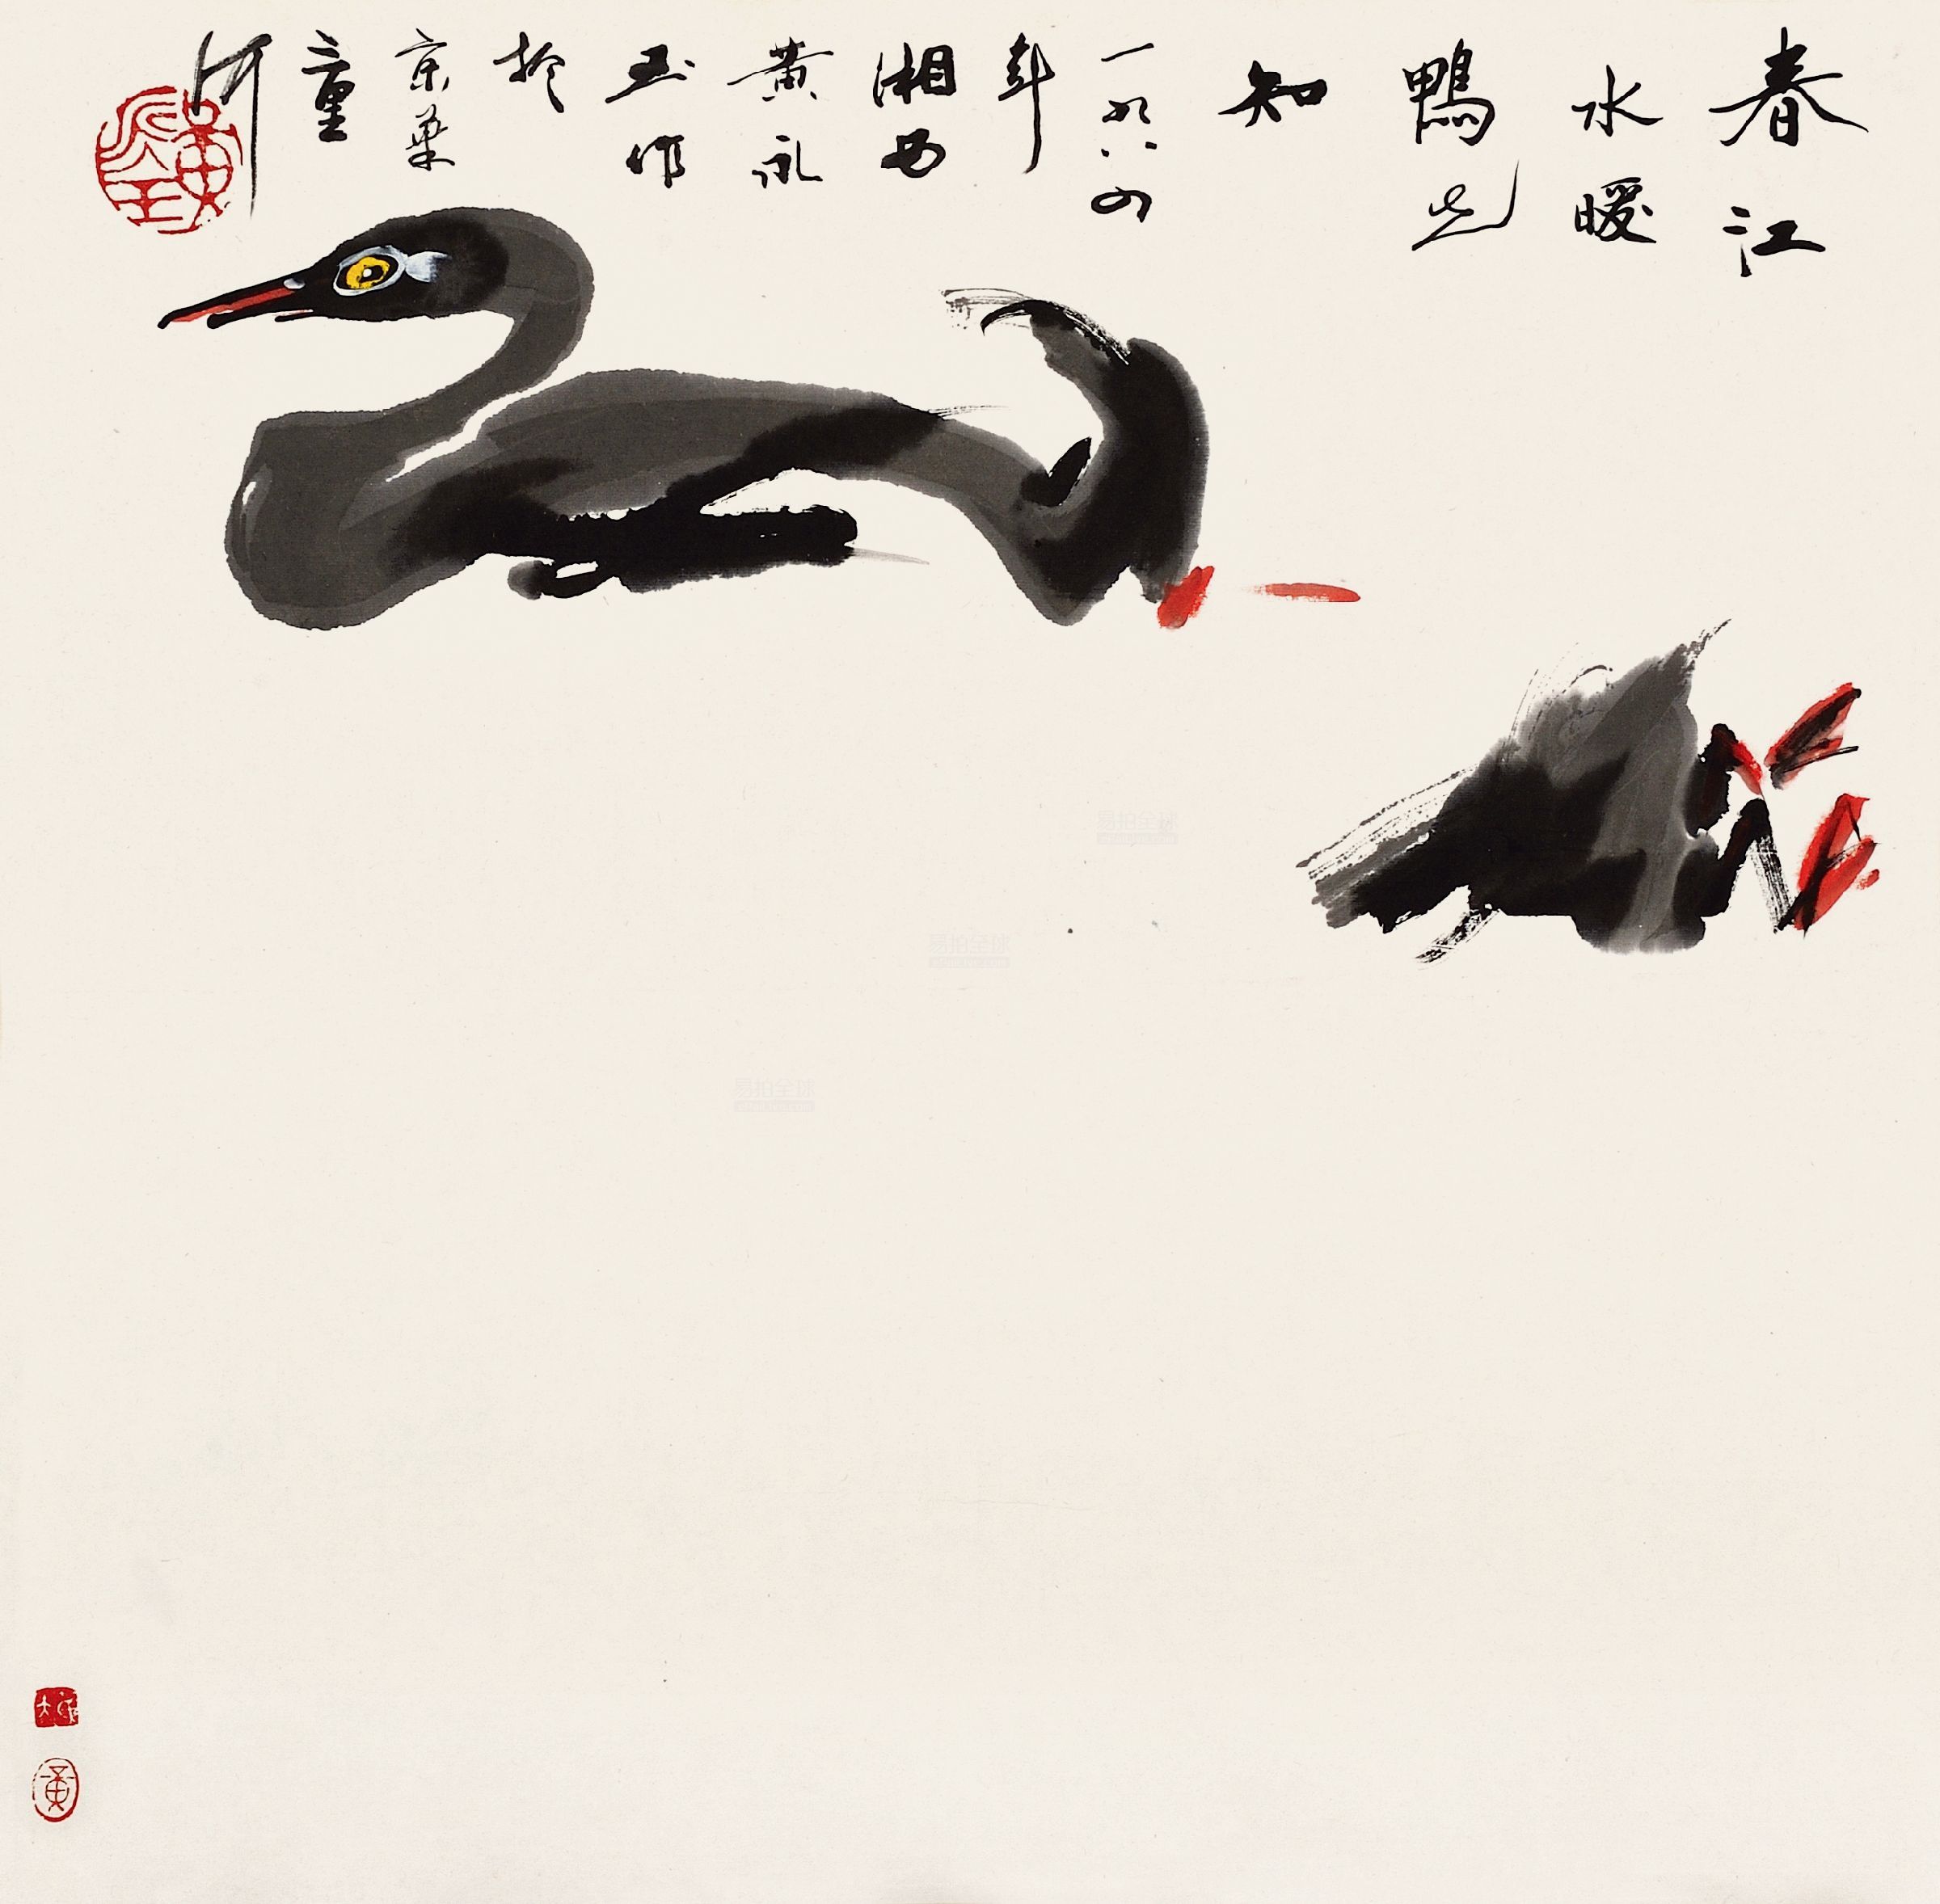 春江
水暖
鴨先
知
一九八四
年
湘西
黄永
玉作
於
京華
三里
河
黄永玉
黄
易拍全球
易拍全球
易拍全球